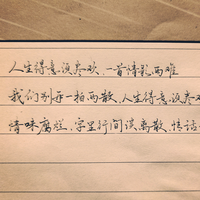 人生得意须尽欢，一首情歌两难
我们别再一拍两散，人生得意须尽欢
情味腐烂，字里行间谈离散，情话